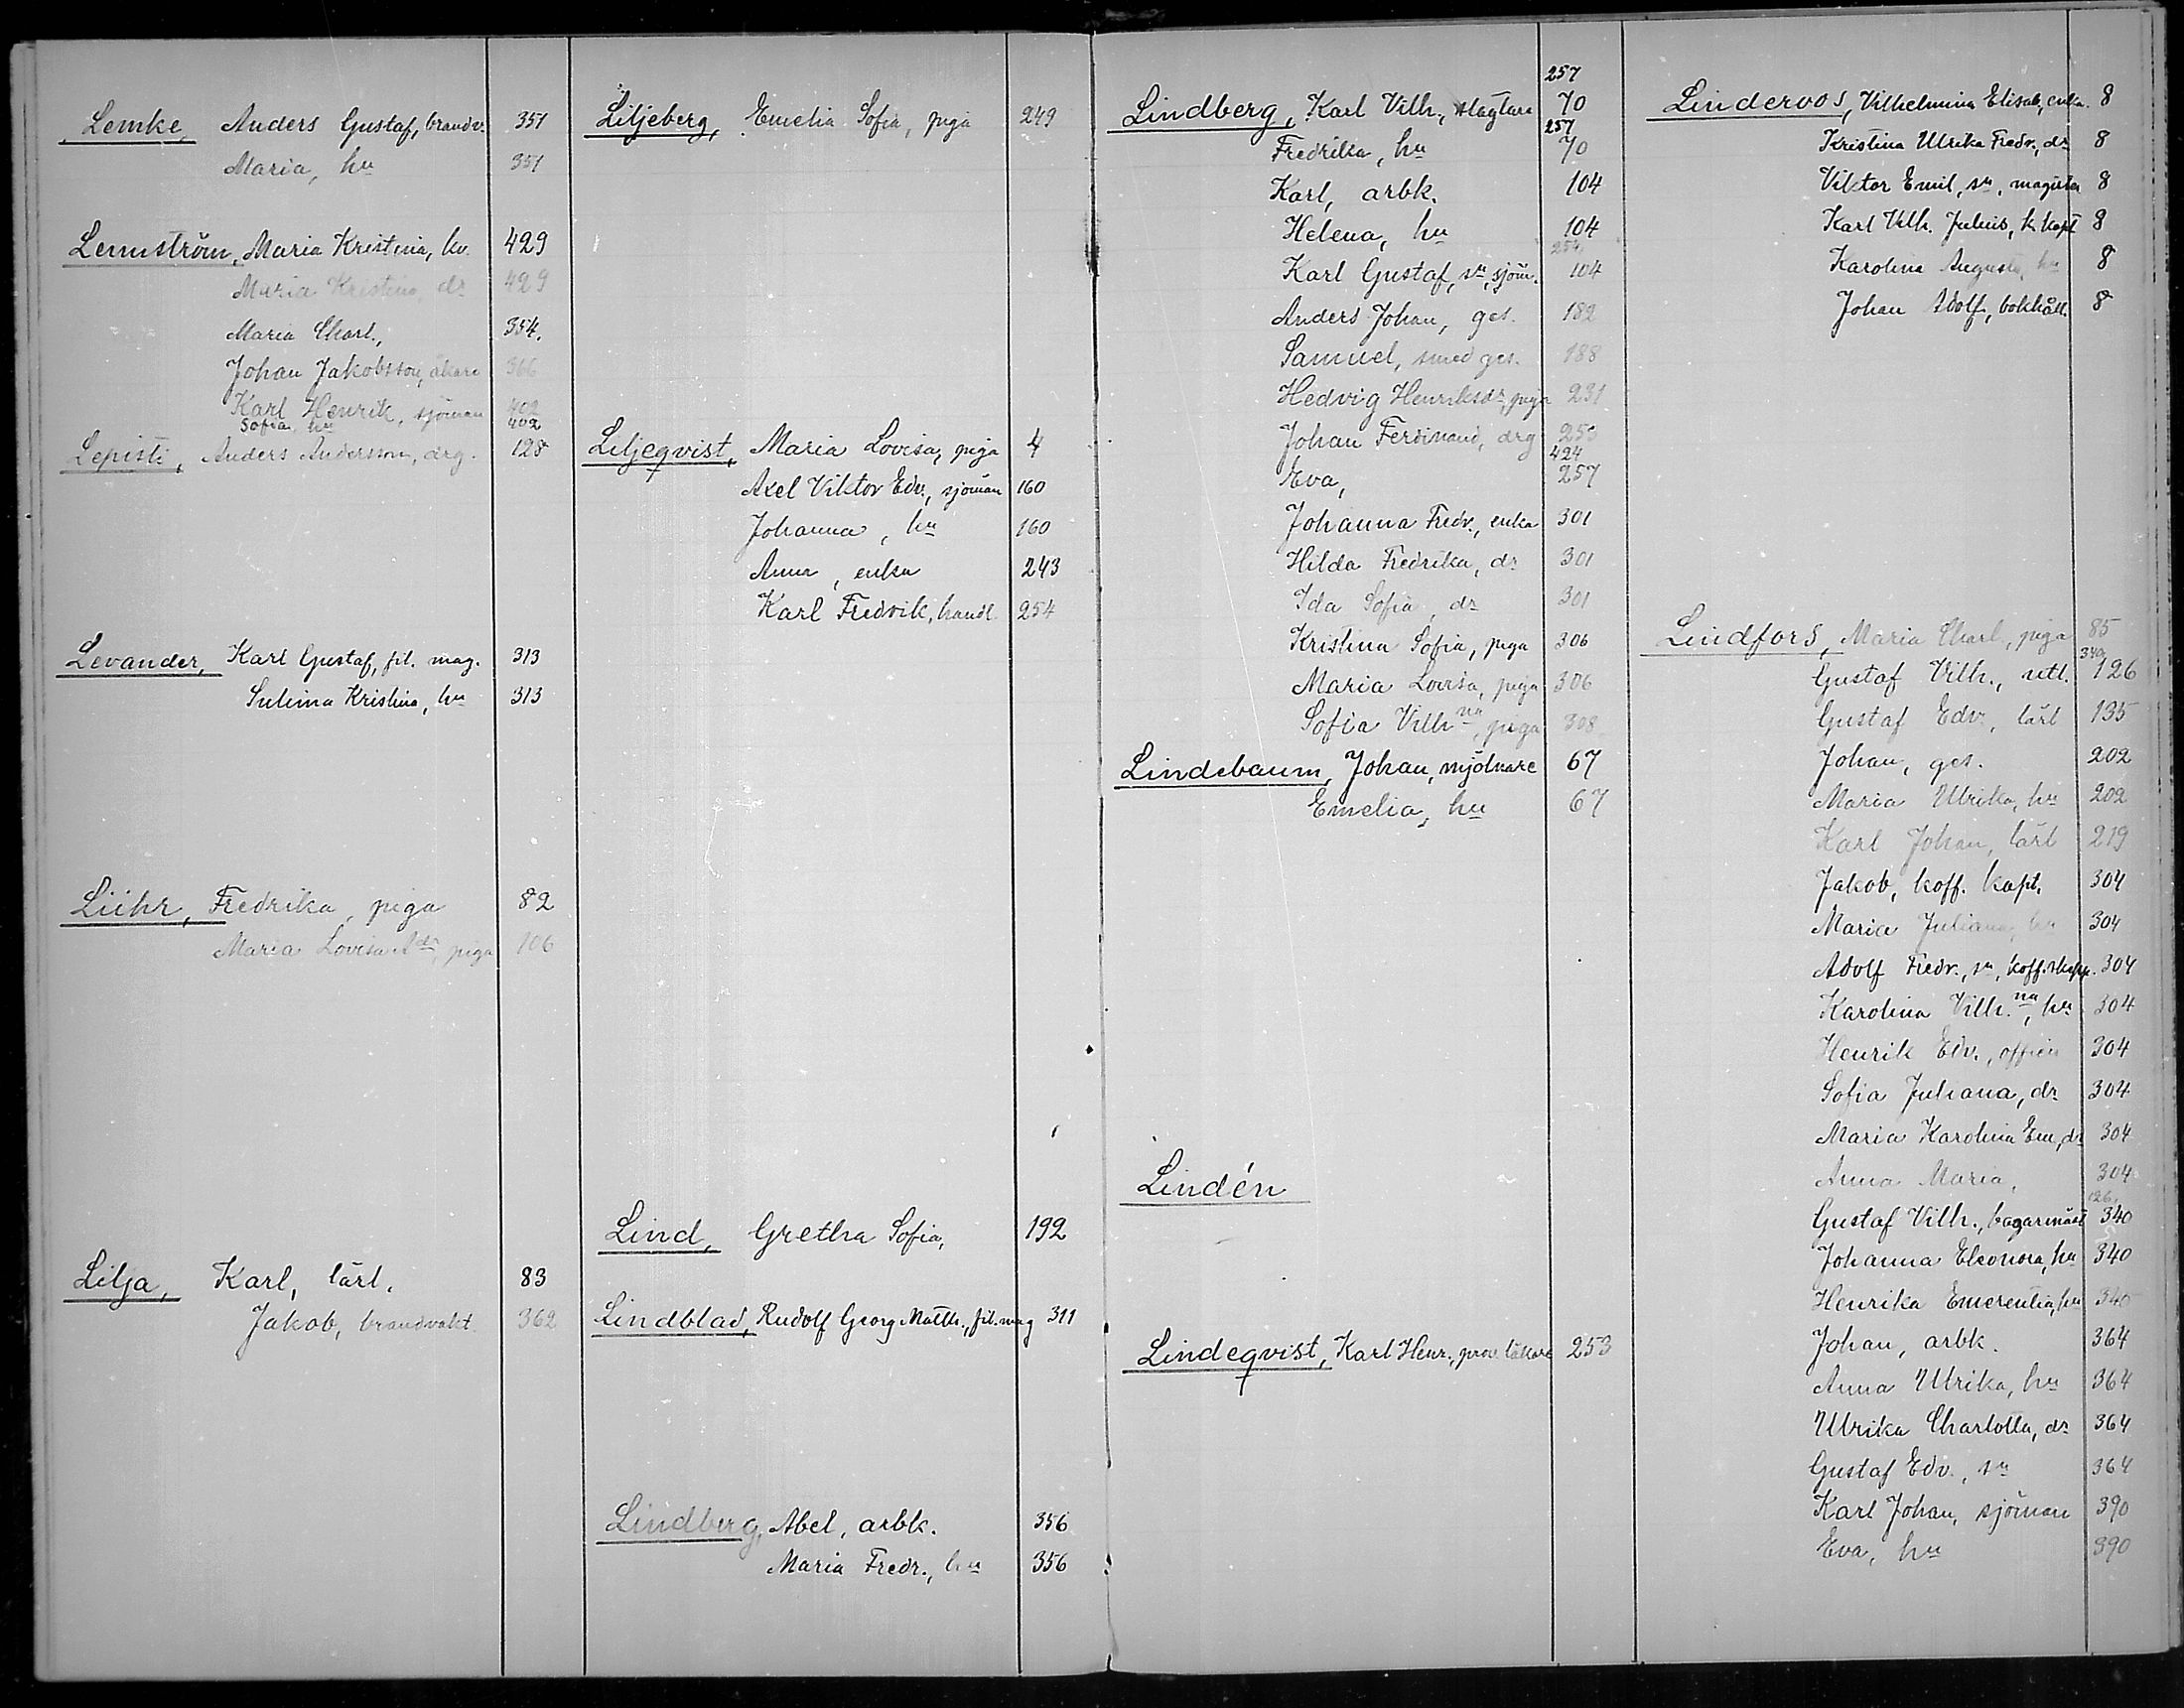 Lemke, Anders Gustaf, brandv. 351
Maria, hu 351
Lennström, Maria Kristina, hu. 429
Maria Kristina, dr 429
Maria Charl., 354.
Johan Jakobsson, åkare 366
Karl Henrik, sjöman 402
Sofia, hu 402
Lepistö, Anders Andersson, drg. 128
Levander, Karl Gustaf, fil. mag. 313
Kristina, hu 313
Liihr, Fredrika, piga 82
Maria Lovisa Adr, piga 106
Lilja, Karl, lärl. 83
Jakob, brandvakt 362
Liljeberg, Emelia Sofia, piga 249
Liljeqvist, Maria Lovisa, piga 4
Axel Viktor Edv., sjöman 160
Johanna, hu 160
Anna, enka 243
Karl Fredrik, handl. 254
Lind, Gretha Sofia, 192
Lindblad, Rudolf Georg Matth., fil. mag 311
Lindberg, Abel, arbk. 356
Maria Fredr., hu 356
257
Lindberg, Karl Vilh., slagtare 70
257
Fredrika, hu 70
Karl, arbk. 104
Helena, hu 104
254
Karl Gustaf, sn, sjöm. 104
Anders Johan, ges. 182
Samuel, smed ges. 188
Hedvig Henriksdr, piga 231
Johan Ferdinand, drg 253
424
Eva, 257
Johanna Fredr., enka 301
Hilda Fredrika, dr 301
Ida Sofia, dr 301
Kristina Sofia, piga 306
Maria Lovisa, piga 306
Sofia Vilhna, piga 308
Lindebaum, Johan, mjölnare 67
Emelia, hu 67
Lindén
Lindeqvist, Karl Henr., prov. läkare 253
Linderoos, Vilhelmina Elisab, enka. 8
Kristina Ulrika Fredr., dr 8
Viktor Emil, sn, magister 8
Karl Vilh. Julius, k kapt 8
Karolina Augusta, hu 8
Johan Adolf, bokhåll. 8
Lindfors, Maria Charl., piga 85
340
Gustaf Vilh., 126
Gustaf Edv., lärl 135
Johan, ges. 202
Maria Ulrika, hu 202
Karl Johan, lärl 219
Jakob, koff. kapt. 304
Maria Juliana, hu 304
Adolf Fredr., sn, koff. skepp. 304
Karolina Vilh.na, hu 304
Henrik Edv., officer 304
Sofia Juliana, dr 304
Maria Karolina Em, dr 304
Anna Maria, 304
126.
Gustaf Vilh., bagarmäst 340
Johanna Eleonora, hu 340
Henrika Emerentia, hu 340
Johan, arbk. 364
Anna Ulrika, hu 364
Ulrika Charlotta, dr 364
Gustaf Edv., sn 364
Karl Johan, sjöman 390
Eva, hu 390